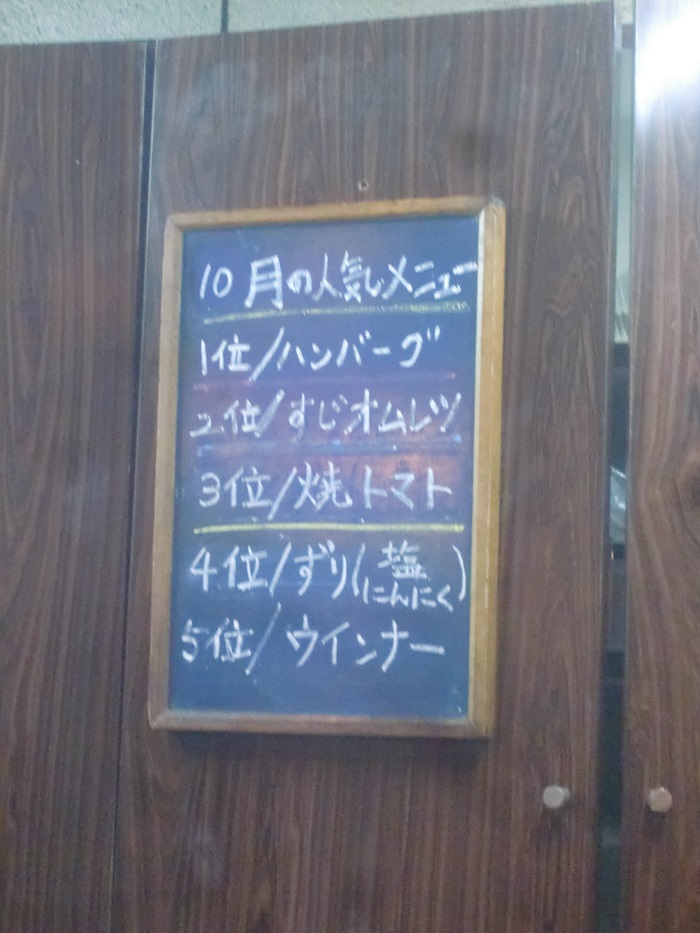 10月の人気メニュー
1位/ハンバーグ
2位/すじオムレツ
3位/焼トマト
4位/ずり(塩にんにく)
5位/ウインナー